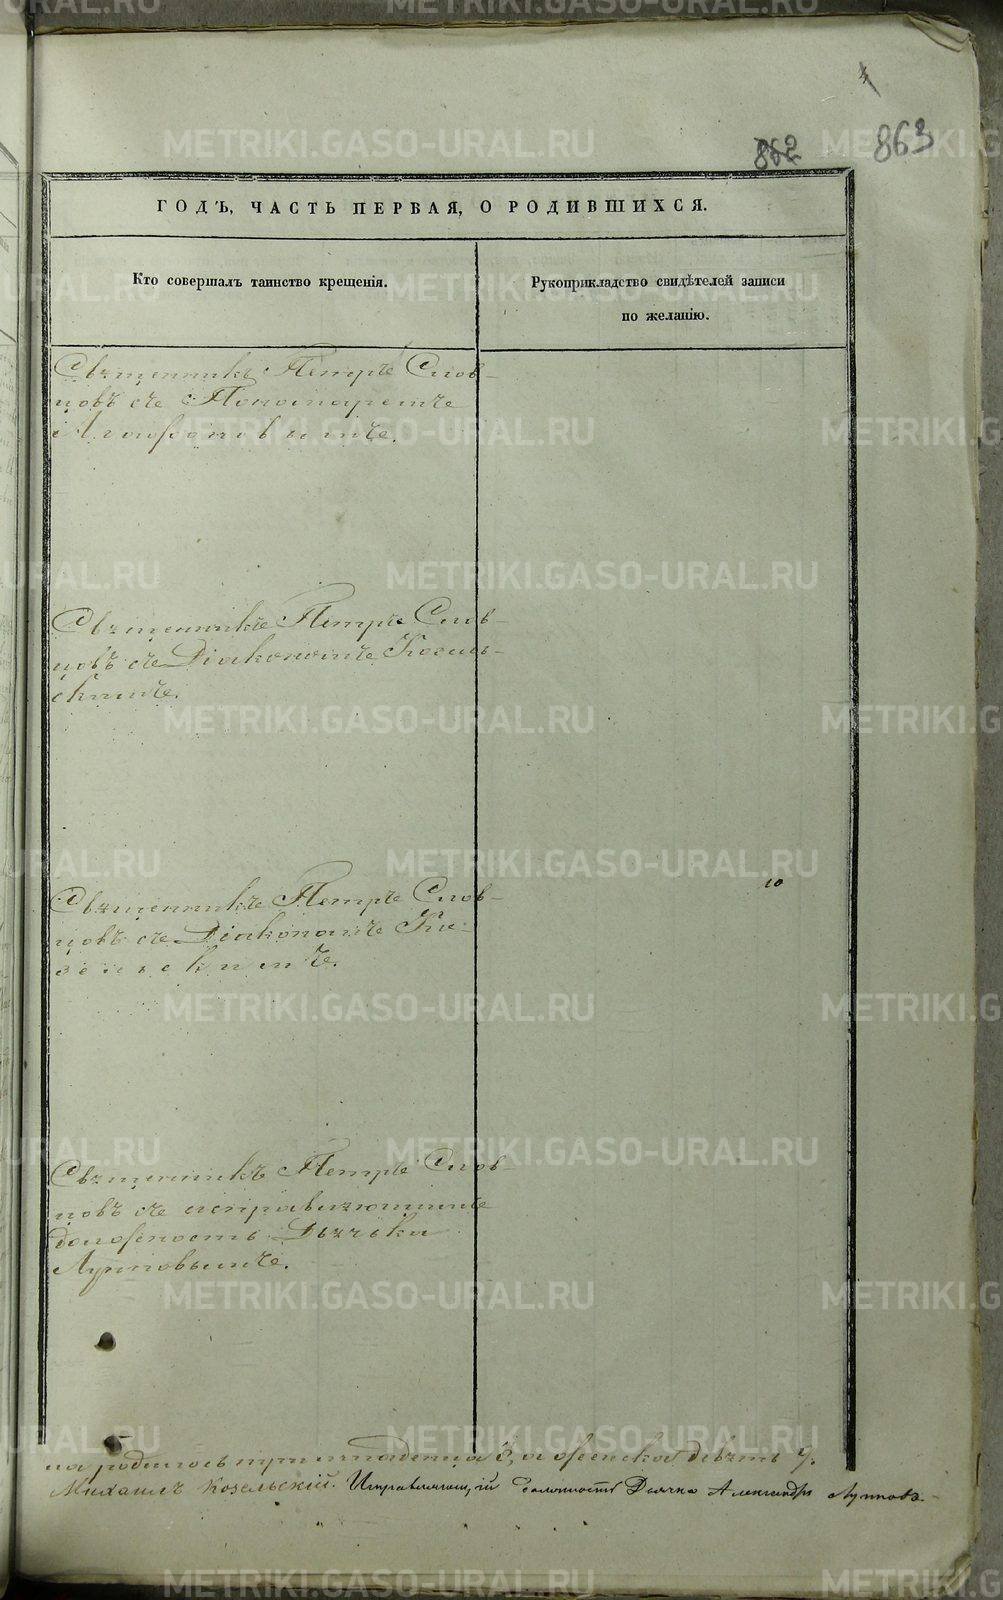 862 863
ГОДЪ, ЧАСТЬ ПЕРВАЯ, О РОДИВШИХСЯ.
Кто совершалъ таинство крещенія.
Рукоприкладство свидѣтелей записи
по желанію.
Священникъ Петръ Слов-
цовъ съ Пономаремъ
Агафоновымъ.
Священникъ Петръ Слов-
цовъ съ Діакономъ Козель-
скимъ.
Священникъ Петръ Слов-
цовъ съ Діакономъ Ко-
зельскимъ.
10
Священникъ Петръ Слов-
цовъ съ исправляющимъ
должность Дьячка
Луповымъ.
па родилось тринадцать 13, а женска девять 9.
Михаилъ Козельскій. Исправляющій должность Дьячка Александръ Луповъ
METRIKI.GASO-URAL.RU